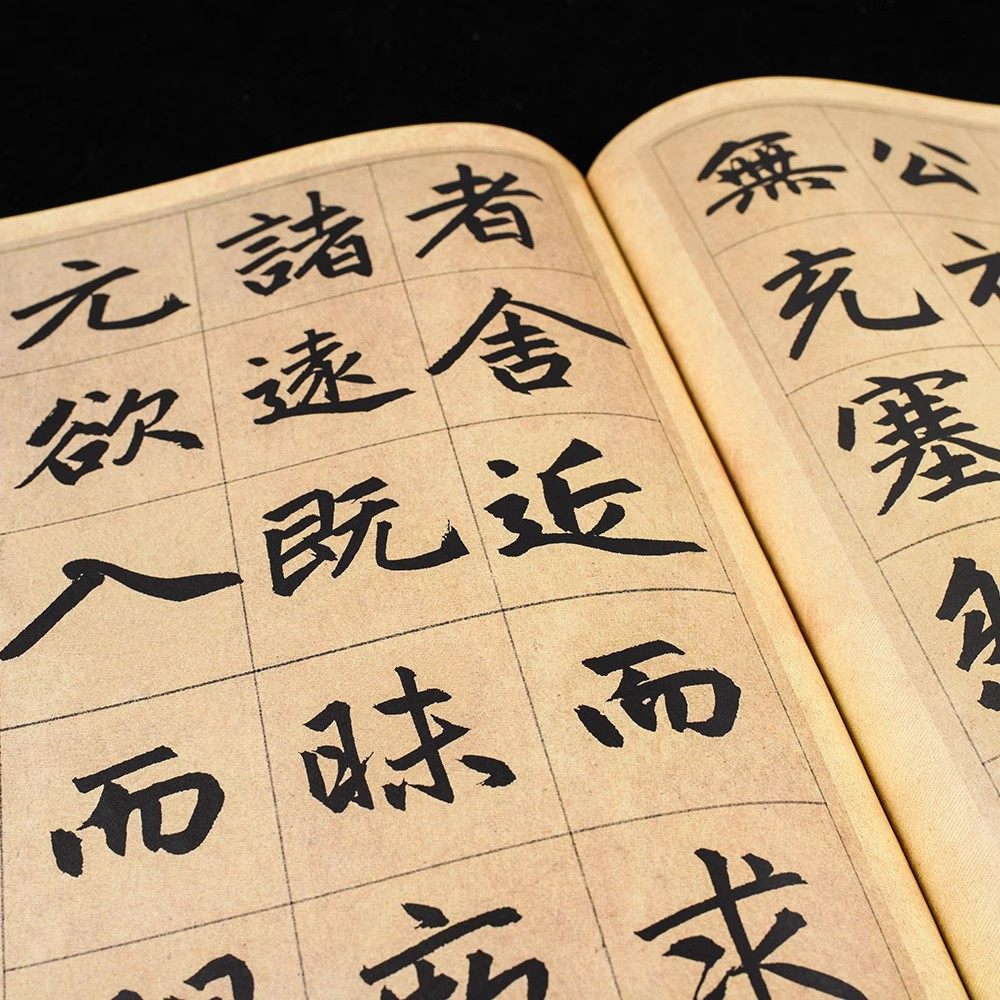 公
無充塞
者舍近而求
諸遠既昧
元欲入而